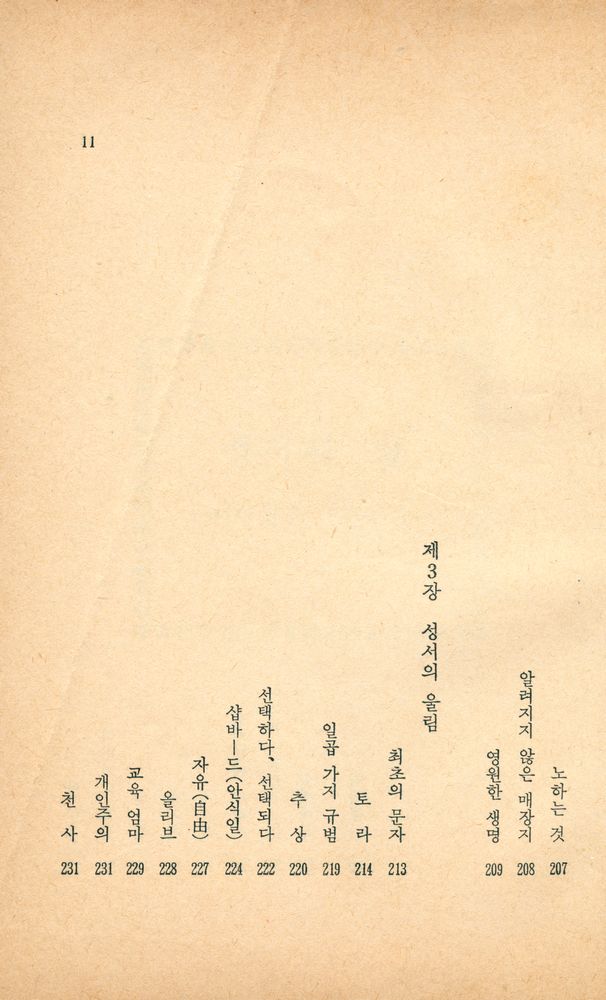 노하는 것 207
알려지지 않은 매장지 208
영원한 생명 209
제3장 성서의 울림
최초의 문자 213
토라 214
일곱 가지 규범 219
추상 220
선택하다, 선택되다 222
샵바―드(안식일) 224
자유(自由) 227
올리브 228
교육 엄마 229
개인주의 231
천사 231
11